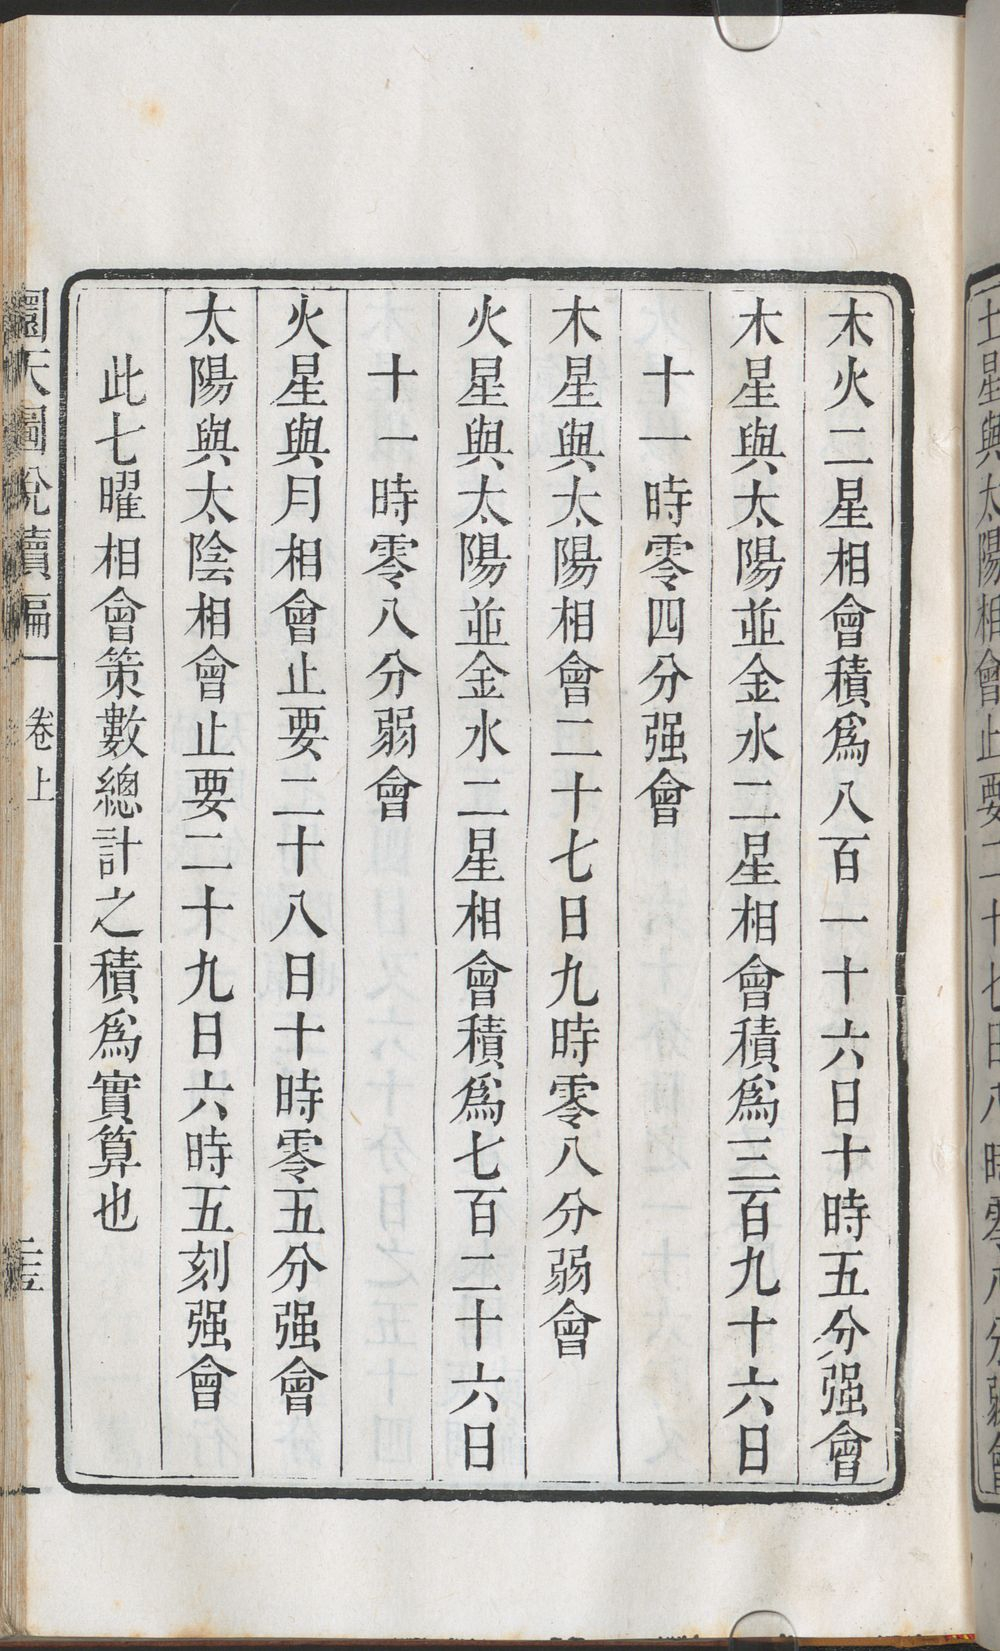 木火二星相會積爲八百一十六日十時五分强會
木星與太陽並金水二星相會積爲三百九十六日
十一時零四分强會
木星與太陽相會二十七日九時零八分弱會
火星與太陽並金水二星相會積爲七百二十六日
十一時零八分弱會
火星與月相會止要二十八日十時零五分强會
太陽與太陰相會止要二十九日六時五刻强會
此七曜相會策數總計之積爲實算也
圜天圖說續編
卷上
土星與太陽相會止要二十七日八時零八分弱會